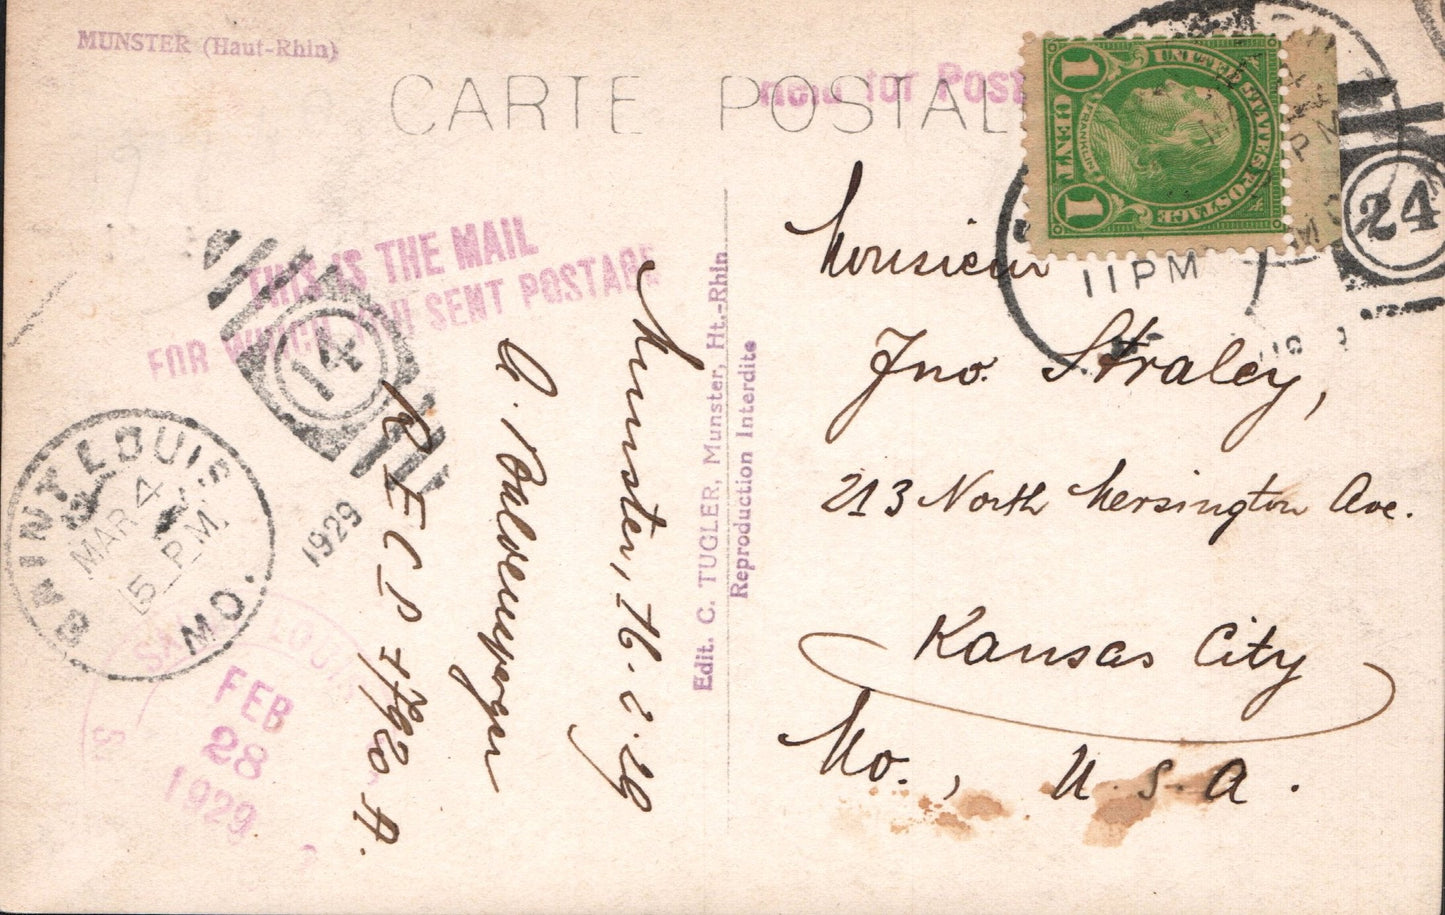 MUNSTER (Haut-Rhin)
CARTE POSTALE
Held for POST
UNITED STATES POSTAGE
FRANKLIN
1 CENT 1
11 PM
24
THIS IS THE MAIL
FOR WHICH YOU SENT POSTAGE
14
SAINT LOUIS
MAR 4
5 P.M.
MO.
1929
SAINT LOUIS
FEB
28
1929
Munster, 16.2.29
RECP
Edit. C. TUGLER, Munster, Ht.-Rhin
Reproduction Interdite
Monsieur
Jno. Straley,
213 North Mersington Ave.
Kansas City
Mo., U.S.A.